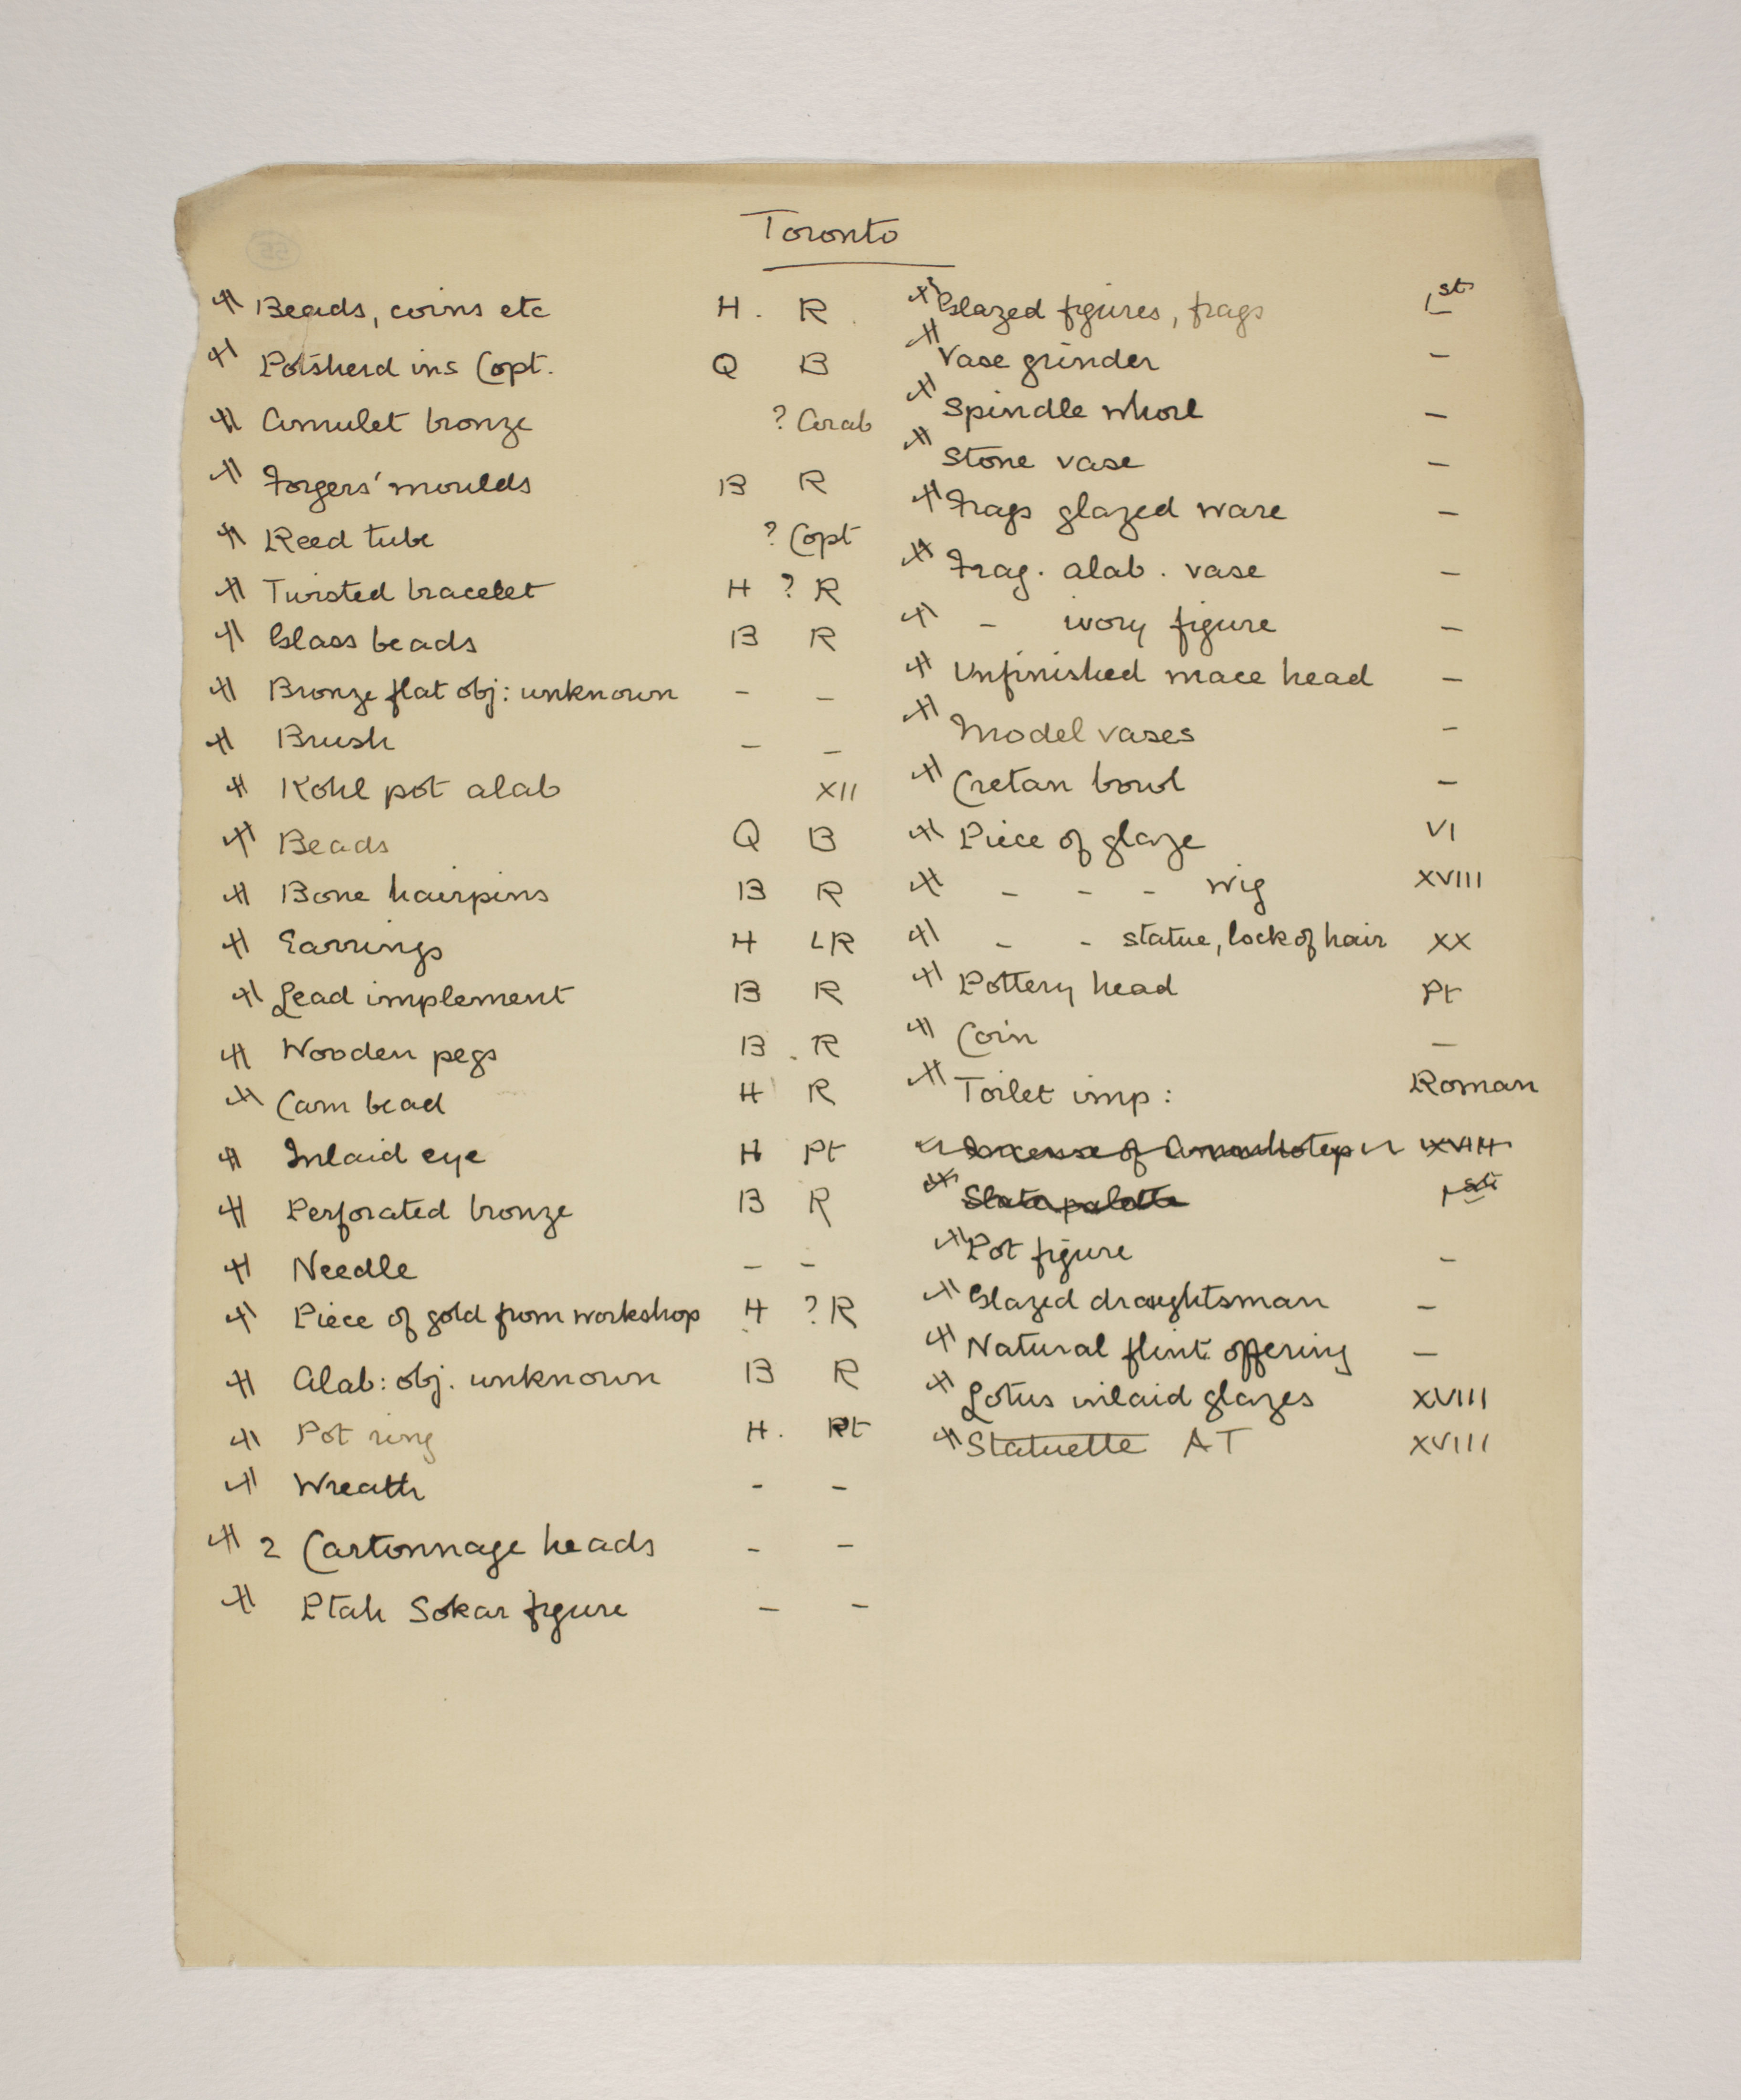 Toronto
Beads, coins etc H. R.
Potsherd ins Copt. Q B
Amulet bronze ? Arab
Forgers' moulds B R
Reed tube ? Copt
Twisted bracelet H ? R
Glass beads B R
Bronze flat obj: unknown - -
Brush - -
Kohl pot alab XII
Beads Q B
Bone hairpins B R
Earrings H LR
Lead implement B R
Wooden pegs B . R
Carn bead H R
Inlaid eye H Pt
Perforated bronze B R
Needle - -
Piece of gold from workshop H ? R
Alab: obj. unknown B R
Pot ring H. Pt
Wreath - -
2 Cartonnage heads - -
Ptah Sokar figure - -
Glazed figures, frags 1st
Vase grinder -
Spindle whorl -
Stone vase -
Frags glazed ware -
Frag. alab. vase -
- ivory figure -
Unfinished mace head -
Model vases -
Cretan bowl -
Piece of glaze VI
- - - wig XVIII
- - statue, lock of hair XX
Pottery head Pt
Coin -
Toilet imp: Roman
Incense of Amenhotep XVIII
Slate palette 1st
Pot figure -
Glazed draughtsman -
Natural flint offering -
Lotus inlaid glazes XVIII
Statuette AT XVIII